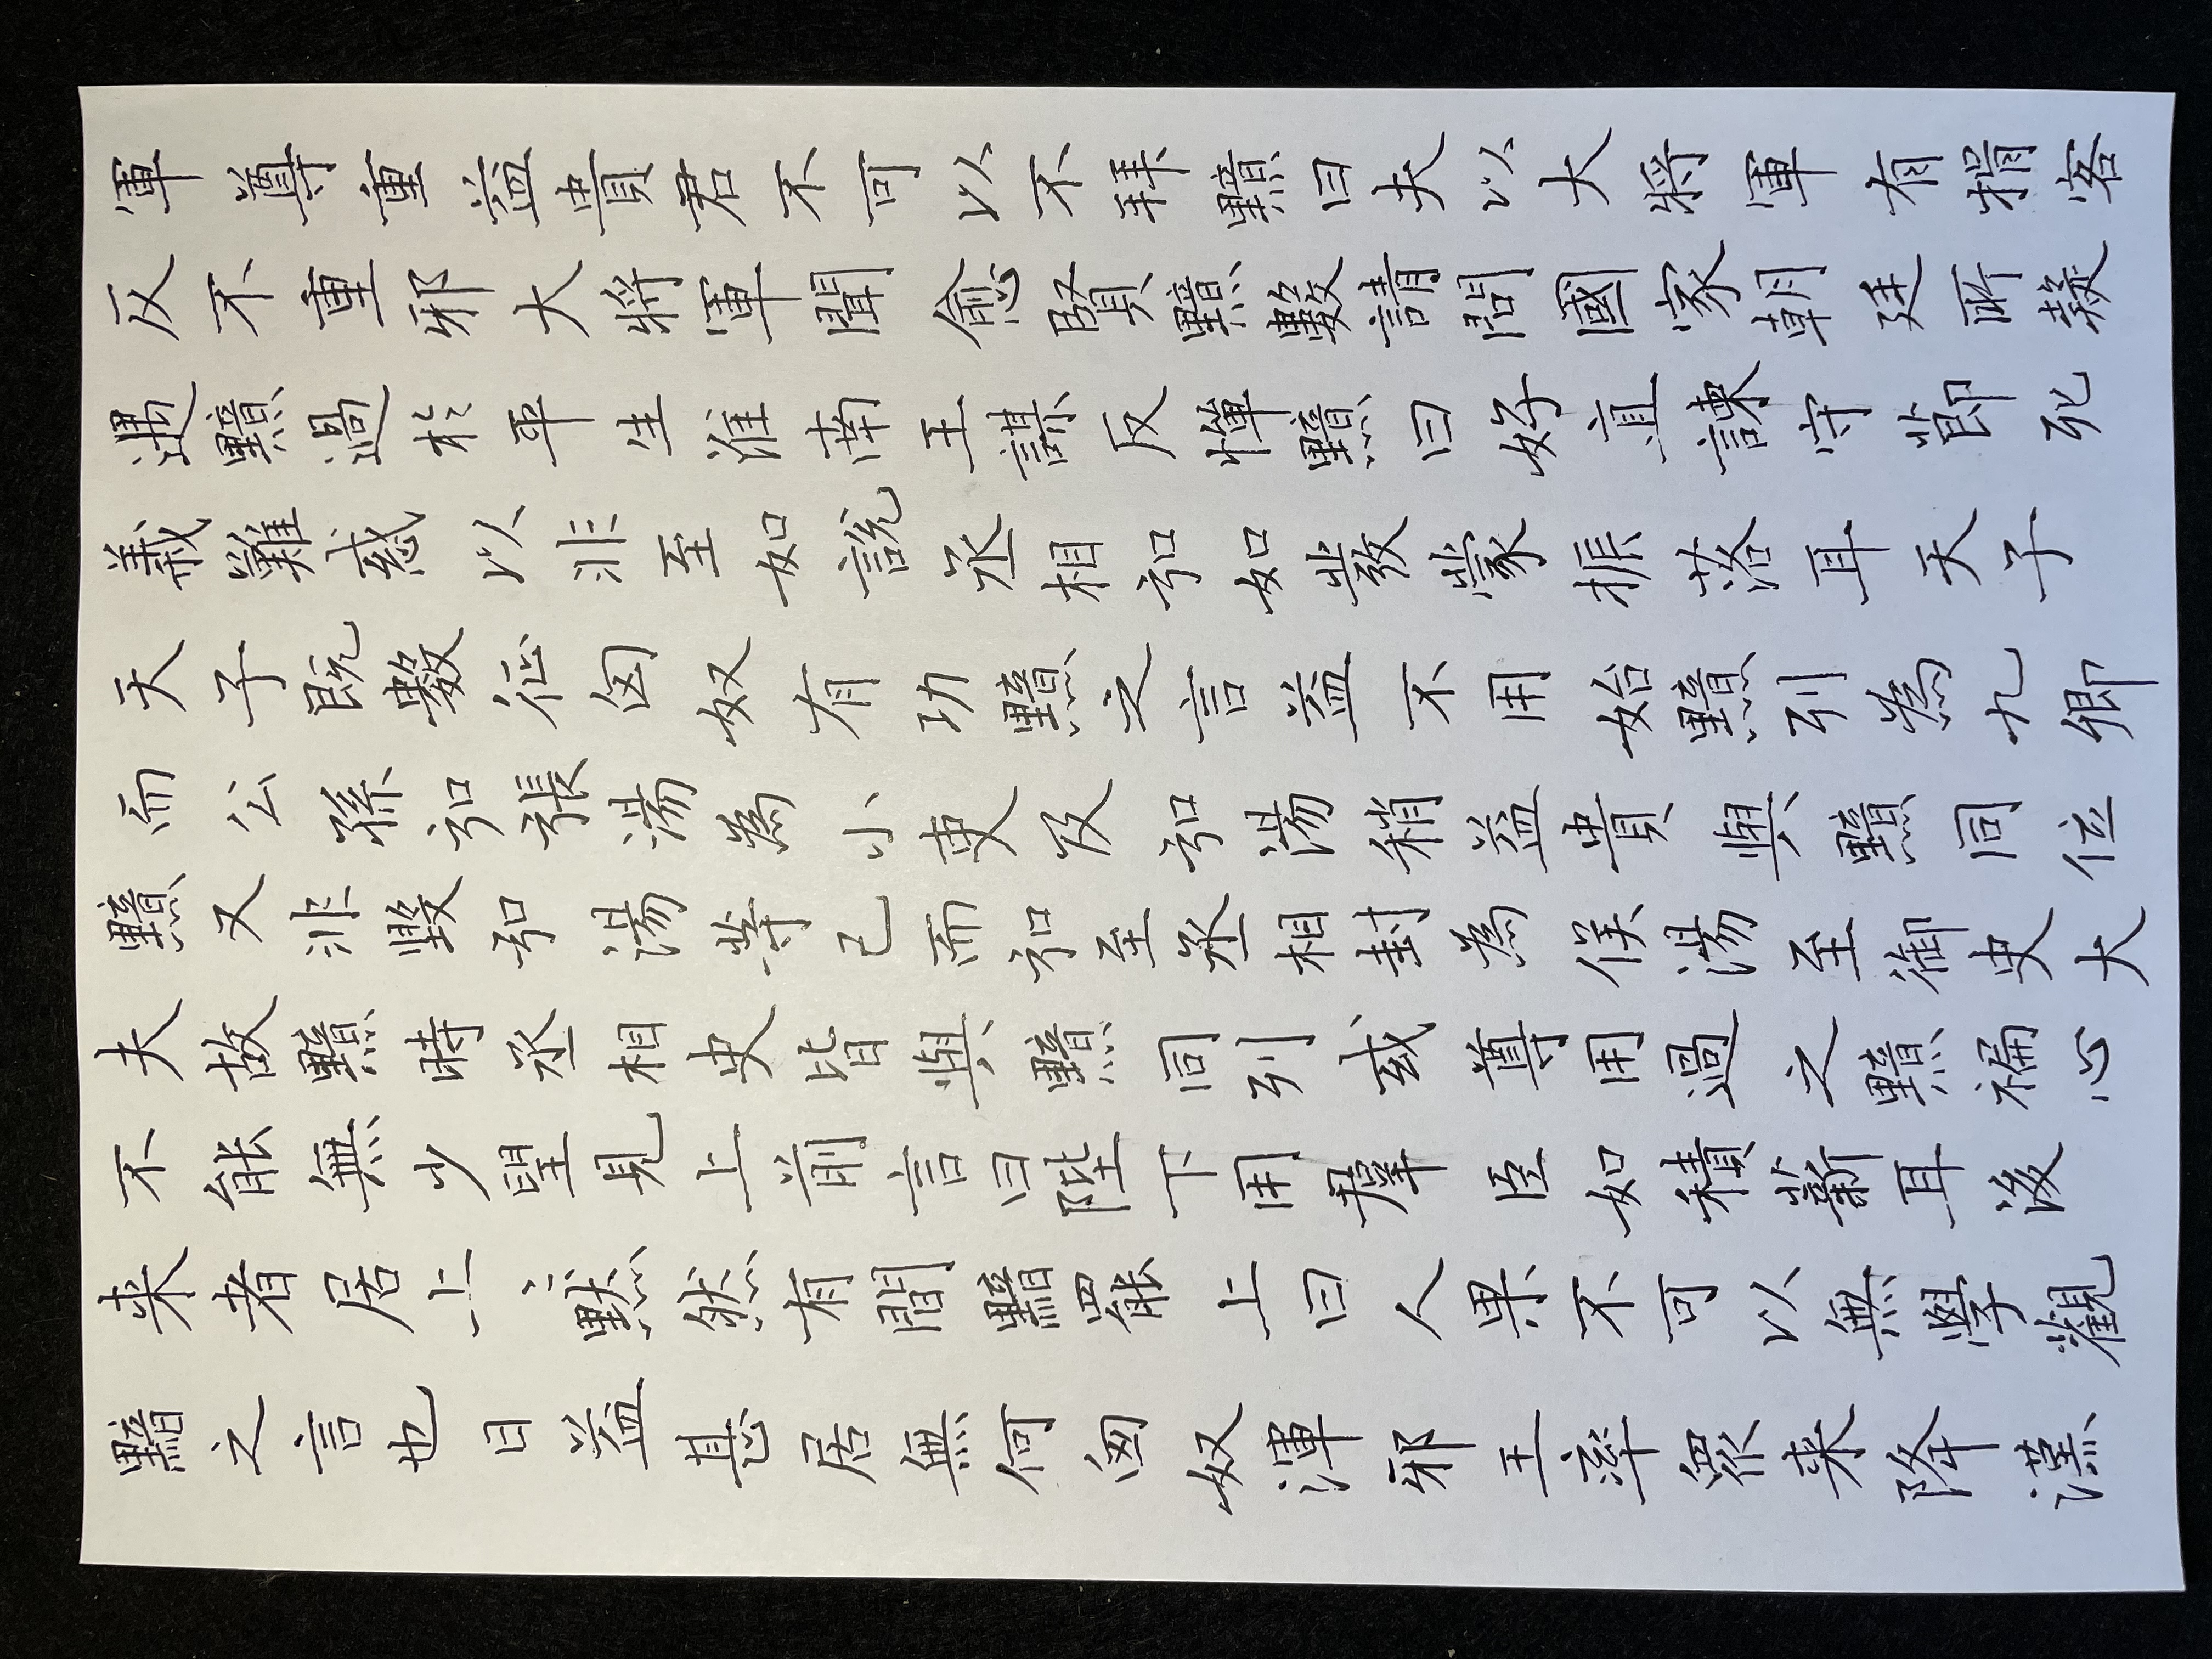 軍尊重益貴君不可以不拜黯曰夫以大將軍有揖客
反不重邪大將軍聞愈賢黯數請問國家朝廷所疑
遇黯過於平生淮南王謀反憚黯曰好直諫守節死
義難惑以非至如說丞相弘如發蒙振落耳天子
天子既數征匈奴有功黯之言益不用始黯列為九卿
而公孫弘張湯為小吏及弘湯稍益貴與黯同位
黯又非毀弘湯等已而弘至丞相封為侯湯至御史大
夫故黯時丞相史皆與黯同列或尊用過之黯褊心
不能無少望見上前言曰陛下用羣臣如積薪耳後
来者居上〻默然有間黯罷上曰人果不可以無學觀
黯之言也日益甚居無何匈奴渾邪王率眾来降漢